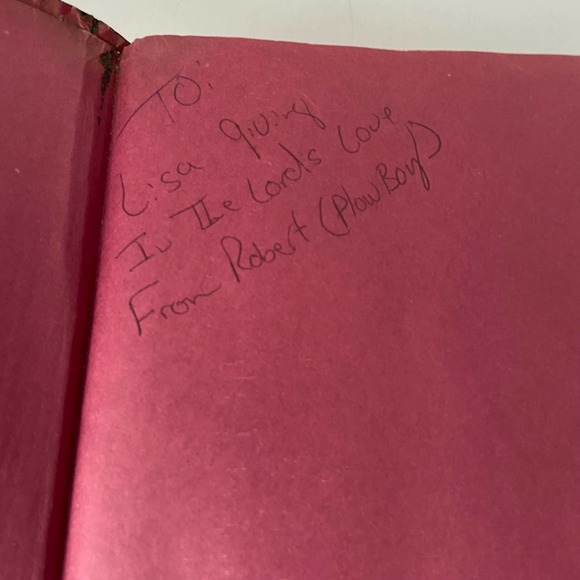 To.
Lisa giving
In The Lords Love
From Robert (PlowBoy)